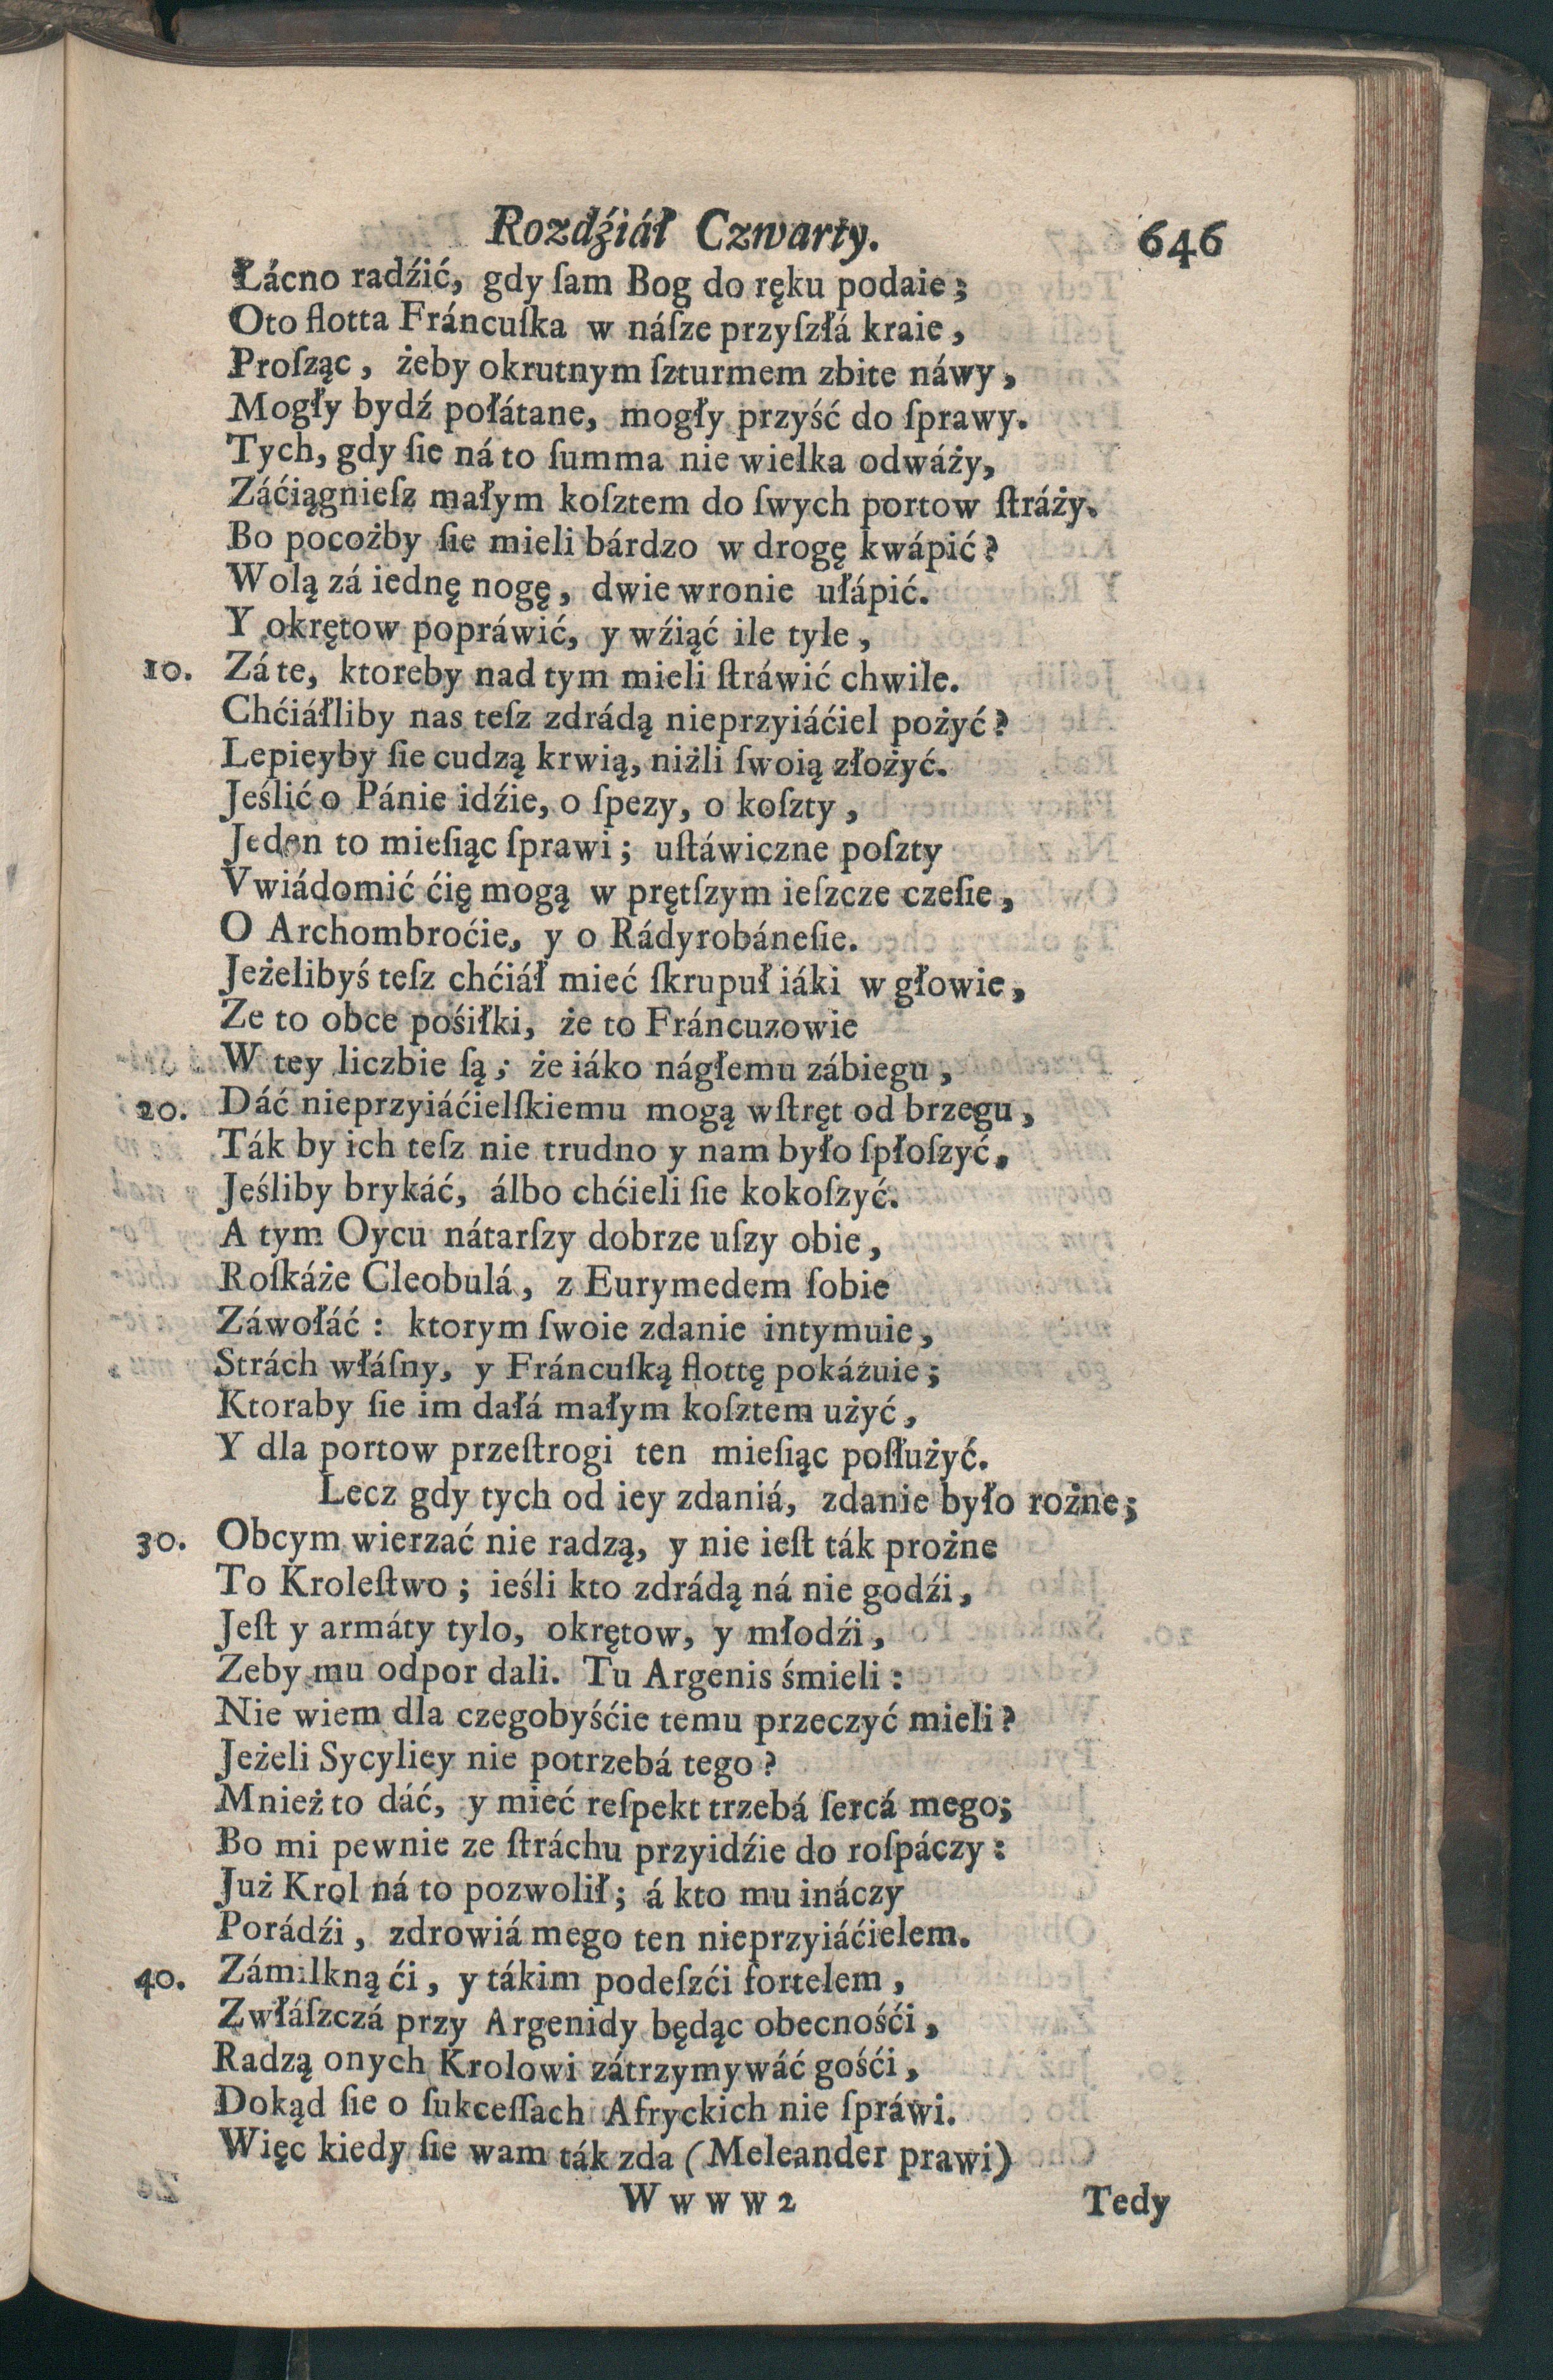 Rozdźiáł Czwarty. 646
Łácno radźić, gdy ſam Bog do ręku podaie;
Oto flotta Fráncuſka w náſze przyſzłá kraie,
Proſząc, żeby okrutnym ſzturmem zbite náwy,
Mogły bydź połátane, mogły przyść do ſprawy.
Tych, gdy ſie ná to ſumma nie wielka odwáży,
Záćiągnieſz małym koſztem do ſwych portow ſtráży.
Bo pocożby ſie mieli bárdzo w drogę kwápić?
Wolą zá iednę nogę, dwie wronie ułápić.
Y okrętow popráwić, y wźiąć ile tyle,
10. Zá te, ktoreby nad tym mieli ſtráwić chwile.
Chćiáłliby nas teſz zdrádą nieprzyiáćiel pożyć?
Lepieyby ſie cudzą krwią, niżli ſwoią złożyć.
Jeślić o Pánie idźie, o ſpezy, o koſzty,
Jeden to mieſiąc ſprawi; uſtáwiczne poſzty
Vwiádomić ćię mogą w prętſzym ieſzcze czeſie,
O Archombroćie, y o Rádyrobáneſie.
Jeżelibyś teſz chćiáł mieć ſkrupuł iáki w głowie,
Ze to obce pośiłki, że to Fráncuzowie
W tey liczbie ſą; że iáko nágłemu zábiegu,
20. Dáć nieprzyiáćielſkiemu mogą wſtręt od brzegu,
Ták by ich teſz nie trudno y nam było ſpłoſzyć,
Jeśliby brykáć, álbo chćieli ſie kokoſzyć.
A tym Oycu nátarſzy dobrze uſzy obie,
Roſkáże Cleobulá, z Eurymedem ſobie
Záwołáć: ktorym ſwoie zdanie intymuie,
Strách włáſny, y Fráncuſką flottę pokázuie;
Ktoraby ſie im dałá małym koſztem użyć,
Y dla portow przeſtrogi ten mieſiąc poſłużyć.
Lecz gdy tych od iey zdaniá, zdanie było rożne;
30. Obcym wierzać nie radzą, y nie ieſt ták prożne
To Kroleſtwo; ieśli kto zdrádą ná nie godźi,
Jeſt y armáty tylo, okrętow, y młodźi,
Zeby mu odpor dali. Tu Argenis śmieli:
Nie wiem dla czegobyśćie temu przeczyć mieli?
Jeżeli Sycyliey nie potrzebá tego?
Mnież to dáć, y mieć reſpekt trzebá ſercá mego;
Bo mi pewnie ze ſtráchu przyidźie do roſpáczy:
Już Krol ná to pozwolił; á kto mu ináczy
Porádźi, zdrowiá mego ten nieprzyiáćielem.
40. Zámilkną ći, y tákim podeſzći fortelem,
Zwłáſzczá przy Argenidy będąc obecnośći,
Radzą onych Krolowi zátrzymywáć gośći,
Dokąd ſie o ſukceſſach Afryckich nie ſpráwi.
Więc kiedy ſie wam ták zda (Meleander prawi)
W w w w 2 Tedy